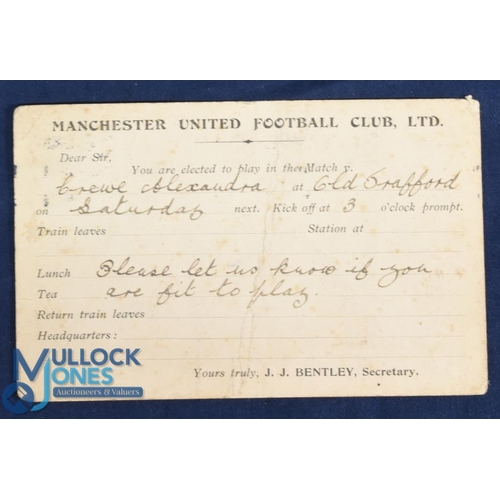 MANCHESTER UNITED FOOTBALL CLUB, LTD.
Dear Sir,
You are elected to play in the Match v.
Crewe Alexandra at Old Trafford
on Saturday next. Kick off at 3 o'clock prompt.
Train leaves Station at
Lunch Please let us know if you
Tea are fit to play.
Return train leaves
Headquarters:
Yours truly, J. J. BENTLEY, Secretary.
MULLOCK
JONES
Auctioneers & Valuers